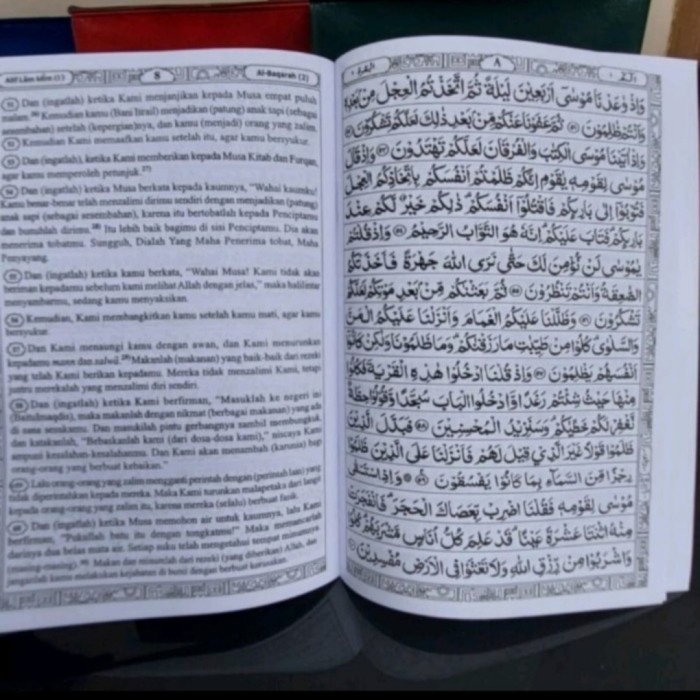 Alif Lâm Mîm (1) 8 Al-Baqarah (2)
51 Dan (ingatlah) ketika Kami menjanjikan kepada Musa empat puluh
malam. Kemudian kamu (Bani Israil) menjadikan (patung) anak sapi (sebagai
sesembahan) setelah (kepergian)nya, dan kamu (menjadi) orang yang zalim.
52 Kemudian Kami memaafkan kamu setelah itu, agar kamu bersyukur.
53 Dan (ingatlah), ketika Kami memberikan kepada Musa Kitab dan Furqan,
agar kamu memperoleh petunjuk.
54 Dan (ingatlah) ketika Musa berkata kepada kaumnya, "Wahai kaumku!
Kamu benar-benar telah menzalimi dirimu sendiri dengan menjadikan (patung)
anak sapi (sebagai sesembahan), karena itu bertobatlah kepada Penciptamu
dan bunuhlah dirimu. Itu lebih baik bagimu di sisi Penciptamu. Dia akan
menerima tobatmu. Sungguh, Dialah Yang Maha Penerima tobat, Maha
Penyayang.
55 Dan (ingatlah) ketika kamu berkata, "Wahai Musa! Kami tidak akan
beriman kepadamu sebelum kami melihat Allah dengan jelas," maka halilintar
menyambarmu, sedang kamu menyaksikan.
56 Kemudian, Kami membangkitkan kamu setelah kamu mati, agar kamu
bersyukur.
57 Dan Kami menaungi kamu dengan awan, dan Kami menurunkan
kepadamu mann dan salwā. Makanlah (makanan) yang baik-baik dari rezeki
yang telah Kami berikan kepadamu. Mereka tidak menzalimi Kami, tetapi
justru merekalah yang menzalimi diri sendiri.
58 Dan (ingatlah) ketika Kami berfirman, "Masuklah ke negeri ini
(Baitulmaqdis), maka makanlah dengan nikmat (berbagai makanan) yang ada
di sana sesukamu. Dan masukilah pintu gerbangnya sambil membungkuk,
dan katakanlah, "Bebaskanlah kami (dari dosa-dosa kami)," niscaya Kami
ampuni kesalahan-kesalahanmu. Dan Kami akan menambah (karunia) bagi
orang-orang yang berbuat kebaikan."
59 Lalu orang-orang yang zalim mengganti perintah dengan (perintah lain) yang
tidak diperintahkan kepada mereka. Maka Kami turunkan malapetaka dari langit
kepada orang-orang yang zalim itu, karena mereka (selalu) berbuat fasik.
60 Dan (ingatlah) ketika Musa memohon air untuk kaumnya, lalu Kami
berfirman, "Pukullah batu itu dengan tongkatmu!" Maka memancarlah
darinya dua belas mata air. Setiap suku telah mengetahui tempat minumnya
(masing-masing). Makan dan minumlah dari rezeki (yang diberikan) Allah, dan
janganlah kamu melakukan kejahatan di bumi dengan berbuat kerusakan.
البقرة ٢ ٨ الٓمّٓ ١
وَاِذْ وٰعَدْنَا مُوْسٰىٓ اَرْبَعِيْنَ لَيْلَةً ثُمَّ اتَّخَذْتُمُ الْعِجْلَ مِنْۢ بَعْدِهٖ
وَاَنْتُمْ ظٰلِمُوْنَ ٥١ ثُمَّ عَفَوْنَا عَنْكُمْ مِّنْۢ بَعْدِ ذٰلِكَ لَعَلَّكُمْ تَشْكُرُوْنَ ٥٢
وَاِذْ اٰتَيْنَا مُوْسَى الْكِتٰبَ وَالْفُرْقَانَ لَعَلَّكُمْ تَهْتَدُوْنَ ٥٣ وَاِذْ قَالَ
مُوْسٰى لِقَوْمِهٖ يٰقَوْمِ اِنَّكُمْ ظَلَمْتُمْ اَنْفُسَكُمْ بِاتِّخَاذِكُمُ الْعِجْلَ
فَتُوْبُوْٓا اِلٰى بَارِىِٕكُمْ فَاقْتُلُوْٓا اَنْفُسَكُمْ ذٰلِكُمْ خَيْرٌ لَّكُمْ عِنْدَ
بَارِىِٕكُمْ فَتَابَ عَلَيْكُمْ اِنَّهٗ هُوَ التَّوَّابُ الرَّحِيْمُ ٥٤ وَاِذْ قُلْتُمْ
يٰمُوْسٰى لَنْ نُّؤْمِنَ لَكَ حَتّٰى نَرَى اللّٰهَ جَهْرَةً فَاَخَذَتْكُمُ
الصّٰعِقَةُ وَاَنْتُمْ تَنْظُرُوْنَ ٥٥ ثُمَّ بَعَثْنٰكُمْ مِّنْۢ بَعْدِ مَوْتِكُمْ لَعَلَّكُمْ
تَشْكُرُوْنَ ٥٦ وَظَلَّلْنَا عَلَيْكُمُ الْغَمَامَ وَاَنْزَلْنَا عَلَيْكُمُ الْمَنَّ
وَالسَّلْوٰى كُلُوْا مِنْ طَيِّبٰتِ مَا رَزَقْنٰكُمْ وَمَا ظَلَمُوْنَا وَلٰكِنْ كَانُوْٓا
اَنْفُسَهُمْ يَظْلِمُوْنَ ٥٧ وَاِذْ قُلْنَا ادْخُلُوْا هٰذِهِ الْقَرْيَةَ فَكُلُوْا
مِنْهَا حَيْثُ شِئْتُمْ رَغَدًا وَّادْخُلُوا الْبَابَ سُجَّدًا وَّقُوْلُوْا حِطَّةٌ
نَّغْفِرْ لَكُمْ خَطٰيٰكُمْ وَسَنَزِيْدُ الْمُحْسِنِيْنَ ٥٨ فَبَدَّلَ الَّذِيْنَ
ظَلَمُوْا قَوْلًا غَيْرَ الَّذِيْ قِيْلَ لَهُمْ فَاَنْزَلْنَا عَلَى الَّذِيْنَ ظَلَمُوْا
رِجْزًا مِّنَ السَّمَاۤءِ بِمَا كَانُوْا يَفْسُقُوْنَ ٥٩ وَاِذِ اسْتَسْقٰى
مُوْسٰى لِقَوْمِهٖ فَقُلْنَا اضْرِبْ بِّعَصَاكَ الْحَجَرَ فَانْفَجَرَتْ
مِنْهُ اثْنَتَا عَشْرَةَ عَيْنًا قَدْ عَلِمَ كُلُّ اُنَاسٍ مَّشْرَبَهُمْ كُلُوْا
وَاشْرَبُوْا مِنْ رِّزْقِ اللّٰهِ وَلَا تَعْثَوْا فِى الْاَرْضِ مُفْسِدِيْنَ ٦٠